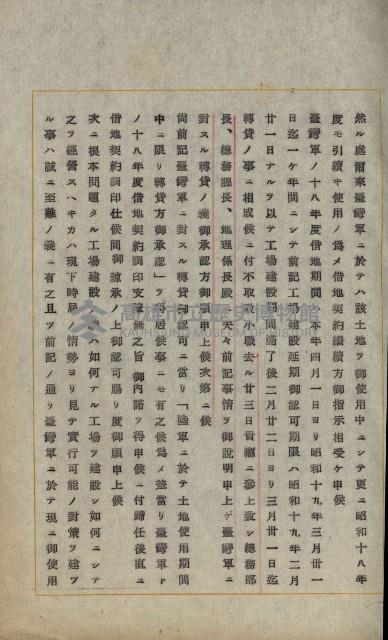 然ル處爾來臺灣軍ニ於テハ該土地ヲ御使用中ニシテ更ニ昭和十八年
度モ引續キ使用ノ爲メ借地契約繼續方御指示相受ケ申候
臺灣軍ノ十八年度借地期間ハ本年四月一日ヨリ昭和十九年三月卅一
日迄一ケ年間ニシテ前記工場建設延期御認可期限ハ昭和十九年二月
廿一日ナルヲ以テ工場建設期間滿了後二月廿二日ヨリ三月卅一日迄
轉貸ノ事ニ相成候ニ付不取敢小職去ル廿三日貴廳ニ參上致シ總務部
長、總務課長、地理係長殿ニ夫々前記事情ヲ御說明申上ゲ臺灣軍ニ
對スル轉貸ノ義御承認方御願申上候次第ニ候
尙前記臺灣軍ニ對スル轉貸御認可ニ當リ「陸軍ニ於テ土地使用期間
中ニ限リ轉貸方御承認」ヲ得居候事ニモ有之候爲メ差當リ臺灣軍ト
ノ十八年度借地契約調印支障無之旨御內諾ヲ得申候ニ付歸任後直ニ
借地契約調印仕候間御諒承ノ上御認可賜リ度御願申上候
次ニ根本問題タル工場建設ニハ如何ナル工場ヲ建設シ如何ニシテ
之ヲ經營スヘキカハ現下時局ノ情勢ヨリ見テ實行可能ノ對策ヲ建ツ
ル事ハ誠ニ至難ノ義ニ有之且ツ前記ノ通リ臺灣軍ニ於テ現ニ御使用
高雄市立歷史博物館